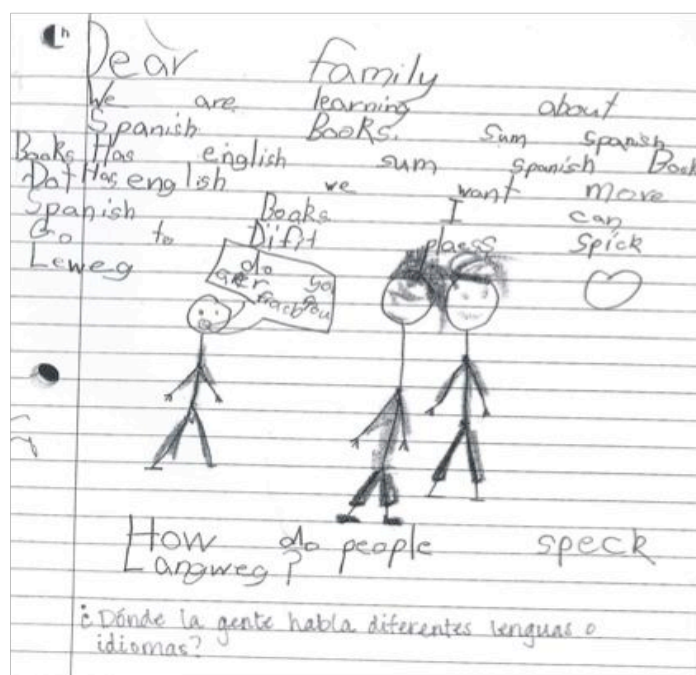 Dear family
We are learning about
Spanish Books. sum spanish
Books Has english sum spanish Book
Dat Has english we want more
Spanish Books I can
Go to Difit plaess spick
Leweg
do yo
you
How do people speck
Langweg?
¿Dónde la gente habla diferentes lenguas o
idiomas?